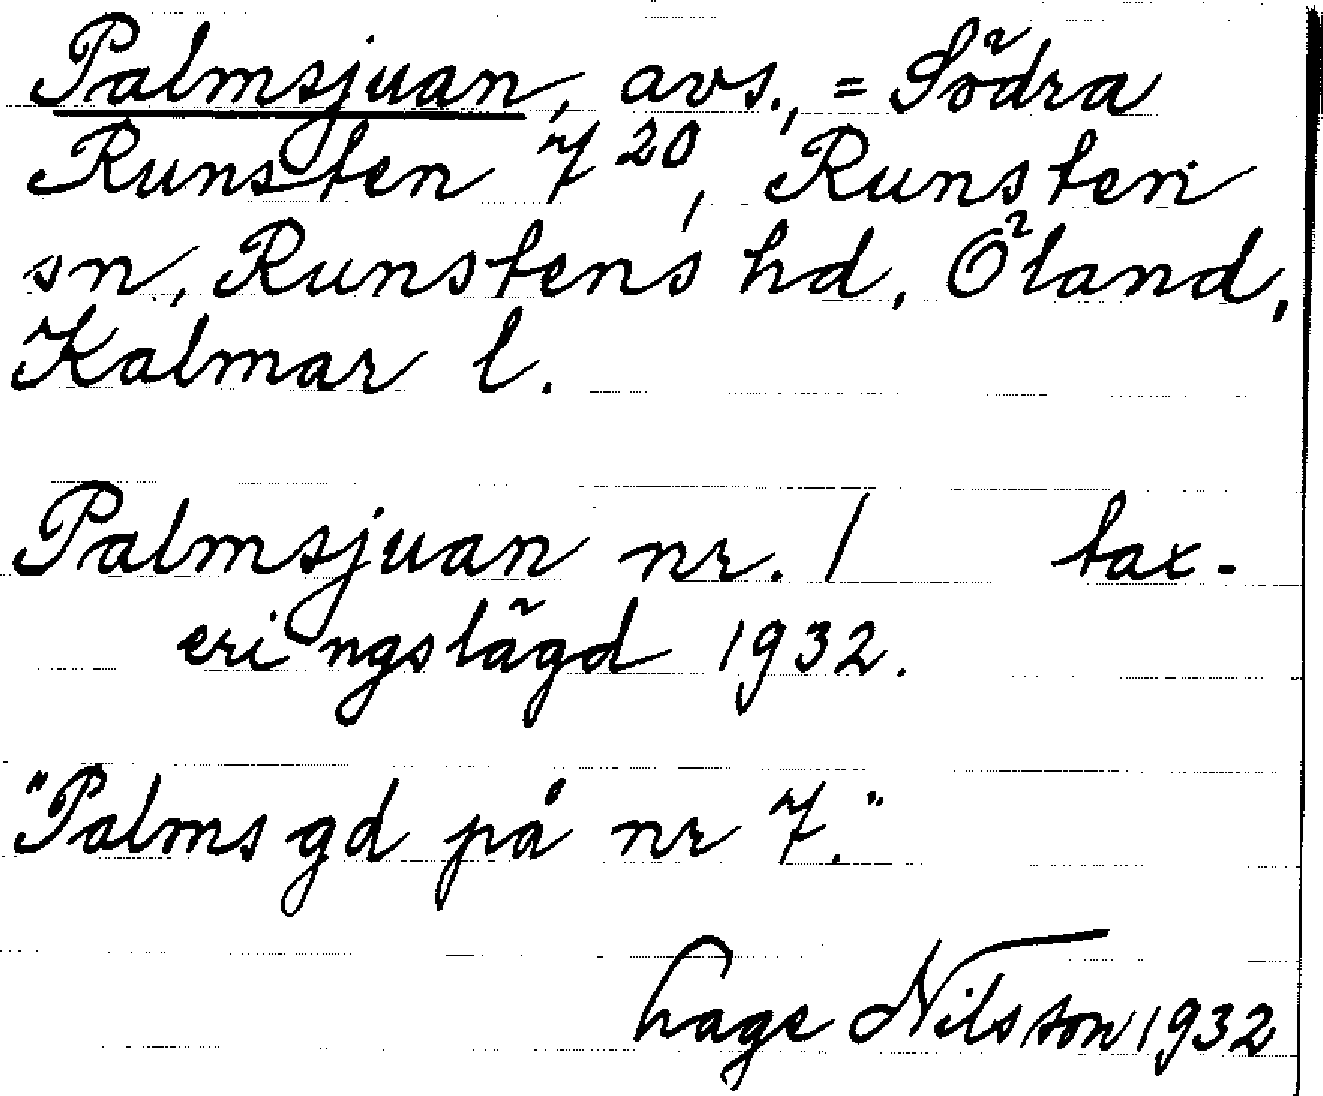 Palmsjuan, avs., = Södra
Runsten 7²⁰, Runsten
sn, Runstens hd, Öland,
Kalmar l.
Palmsjuan nr. / tax-
eringslägd 1932.
"Palms gd på nr 7."
Lage Nilsson 1932